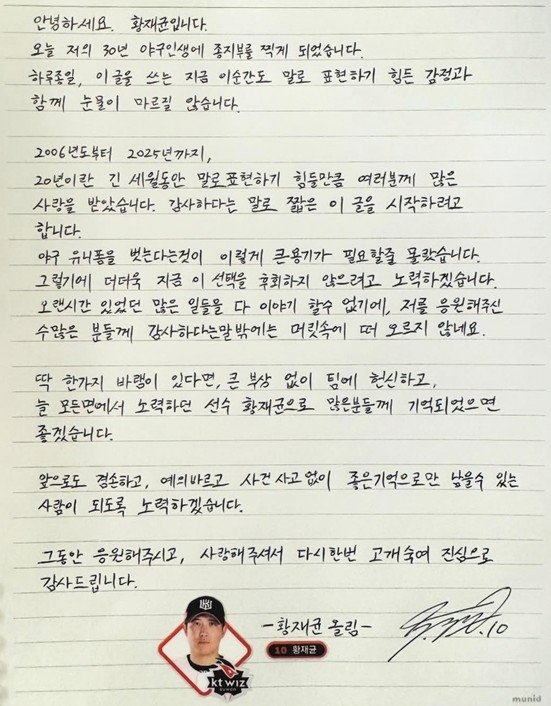 안녕하세요. 황재균입니다.
오늘 저의 30년 야구인생에 종지부를 찍게 되었습니다.
하루종일, 이 글을 쓰는 지금 이순간도 말로 표현하기 힘든 감정과
함께 눈물이 마르질 않습니다.
2006년도부터 2025년까지,
20년이란 긴 세월동안 말로표현하기 힘들만큼 여러분께 많은
사랑을 받았습니다. 감사하다는 말로 짧은 이 글을 시작하려고
합니다.
야구 유니폼을 벗는다는것이 이렇게 큰용기가 필요할줄 몰랐습니다.
그렇기에 더더욱 지금 이 선택을 후회하지 않으려고 노력하겠습니다.
오랜시간 있었던 많은 일들을 다 이야기 할수 없기에, 저를 응원해주신
수많은 분들께 감사하다는말 밖에는 머릿속에 떠 오르지 않네요.
딱 한가지 바램이 있다면, 큰 부상 없이 팀에 헌신하고,
늘 모든면에서 노력하던 선수 황재균으로 많은분들께 기억되었으면
좋겠습니다.
앞으로도 겸손하고, 예의바르고 사건사고없이 좋은기억으로만 남을수 있는
사람이 되도록 노력하겠습니다.
그동안 응원해주시고, 사랑해주셔서 다시한번 고개숙여 진심으로
감사드립니다.
-황재균 올림-
10
10 황재균
kt wiz
SUWON
munid